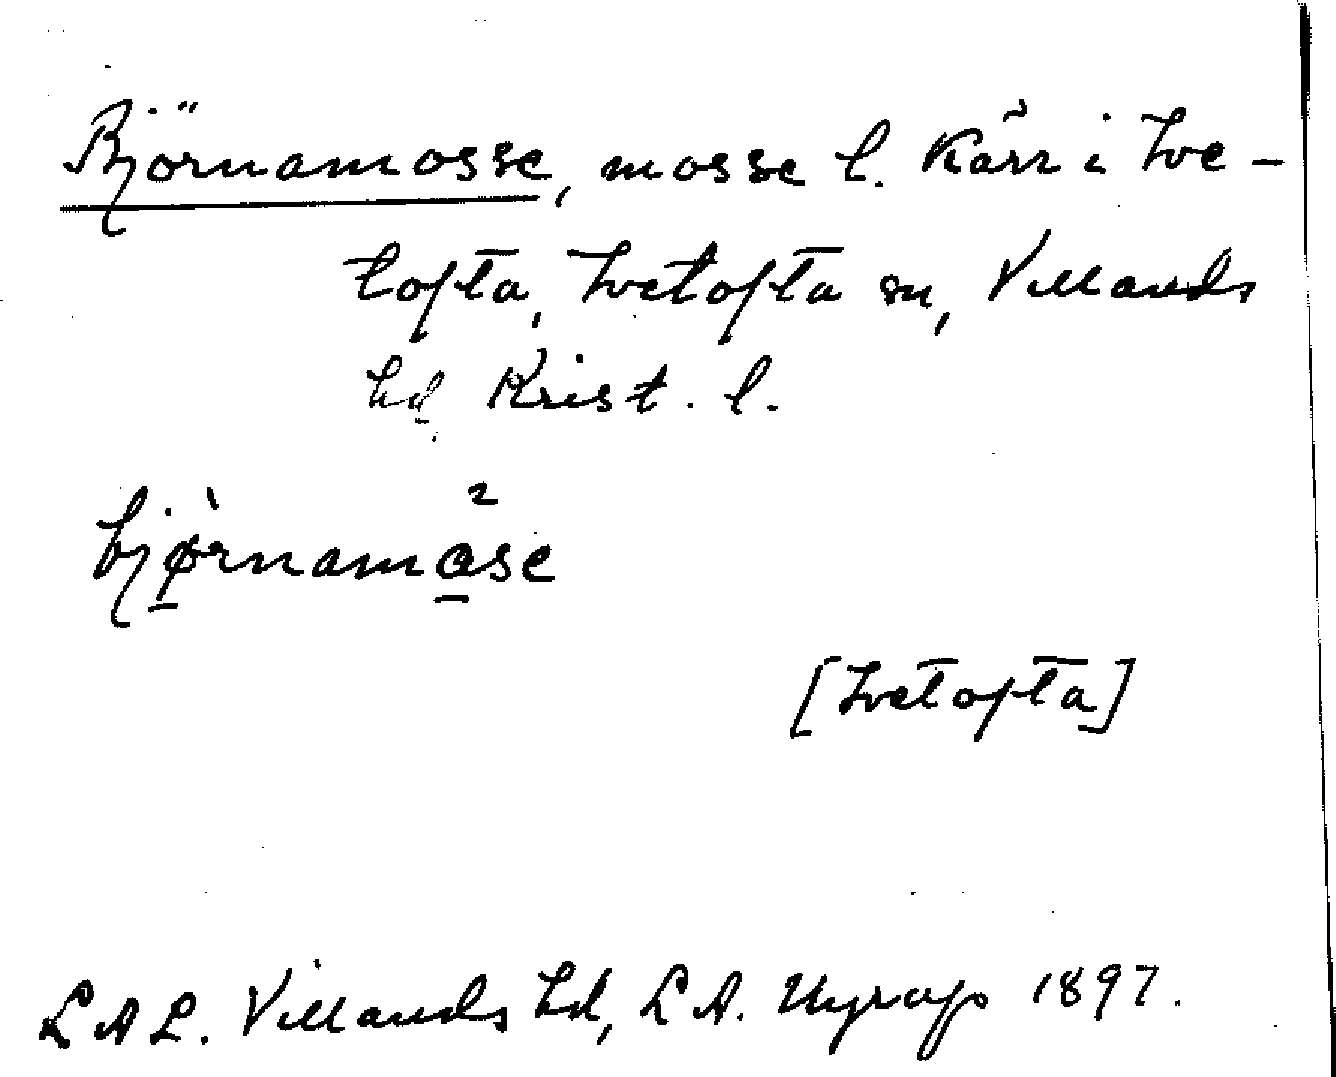 Björnamosse, mosse l. Kärr i Ive-
tofta, Ivetofta sn, Villands
hd Krist. l.
bjørnamåse
[Ivetofta]
L A L. Villands hd, L A. 1897.